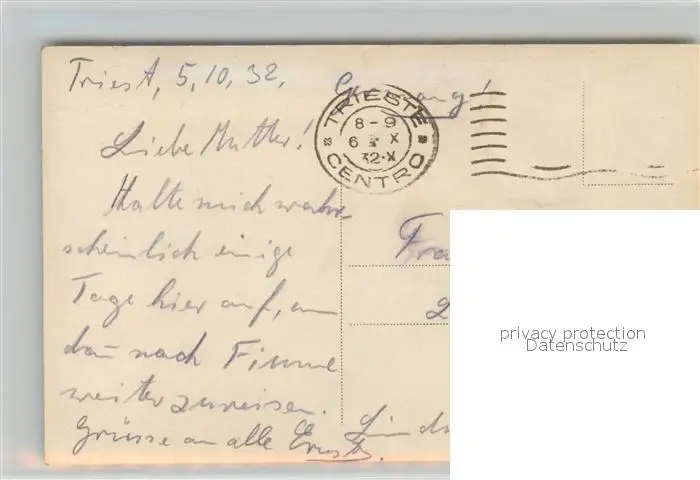 Triest, 5, 10, 32,
Liebe Mutter!
Halte mich wahr-
scheinlich einige
Tage hier auf, um
dañ nach Fiume
weiterzureisen.
Grüsse an alle Ernst.
TRIESTE
8-9
6 X
32-X
CENTRO
Fra
privacy protection
Datenschutz